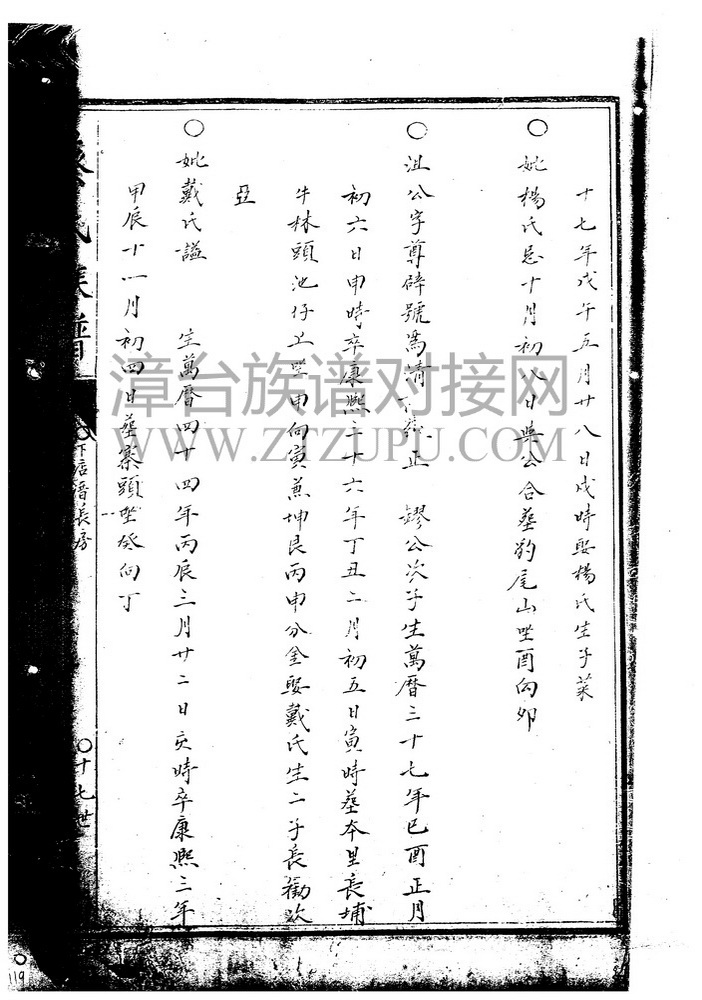 十七年戊午五月廿八日戌時娶楊氏生子葉
○妣楊氏忌十月初八日與公合塟豹尾山坐酉向卯
○祖公字尊辟號為清 正 鏐公次子生萬曆三十七年巳酉正月
初六日申時卒康熙三十六年丁丑二月初五日寅時塟本里長埔
牛林頭池仔上坐申向寅兼坤艮丙申分金娶戴氏生二子長勸次
亞
○妣戴氏謚 生萬曆四十四年丙辰三月廿二日亥時卒康熙三年
甲辰十一月初四日塟寨頭坐癸向丁
氏族譜
下店晋長房
○十七世
119
漳台族谱对接网
WWW.ZTZUPU.COM